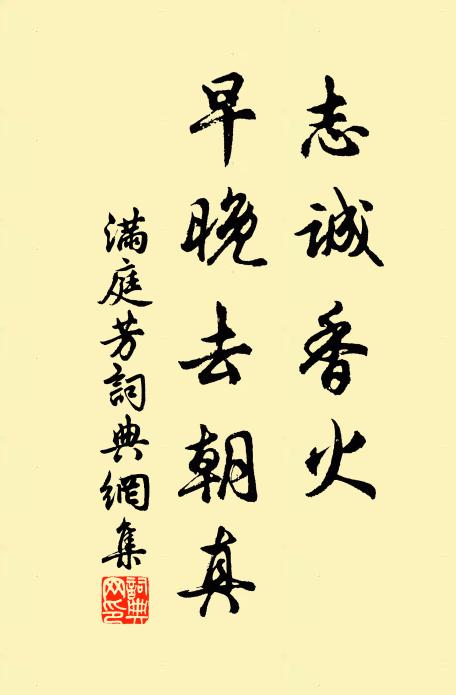 志誠香火
早晚去朝真
滿庭芳詞典網集
詞典
网印